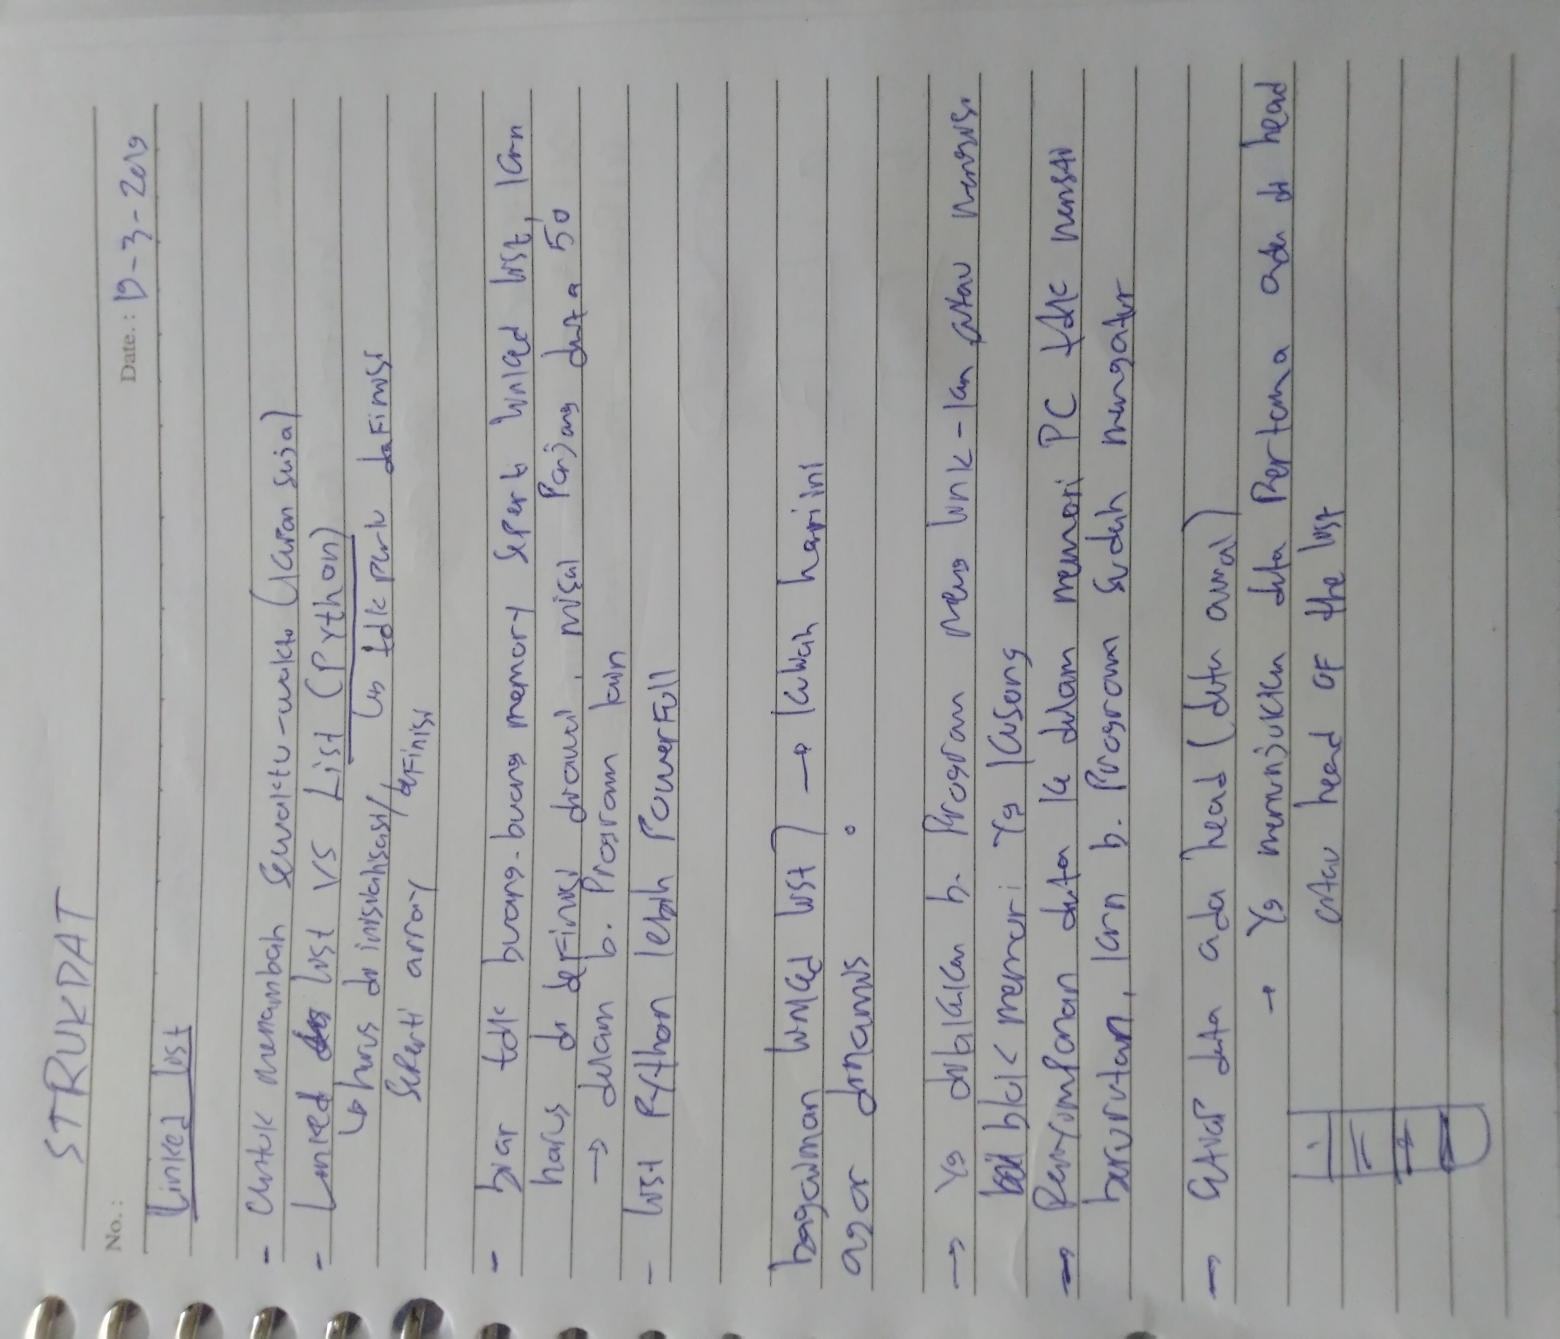 STRUKDAT
No.: Date.: 19-3-2019
Linked list
- Untuk menambah sewaktu-waktu (Jaron suja)
- Linked list VS List (Python)
↳ harus di inisialisasi/definisi ↳ tdk perlu definisi
seperti array
- biar tdk buang-buang memory seperti linked list, krn
harus di definisi diawal, misal Panjang data 50
→ dalam b. Program lain
- list Python lebih PowerFull
bagaiman linked list) → kuliah hari ini
agar dinamis
→ Yg dilakukan b. Program meng link-kan atau mengisi
blok memori Yg kosong
→ Penyimpanan data ke dalam memori PC tdk mesti
berurutan, krn b. Program sudah mengatur
→ setiap data ada head (data awal)
→ Yg menunjukkan data Pertama ada di head
atau head OF the list